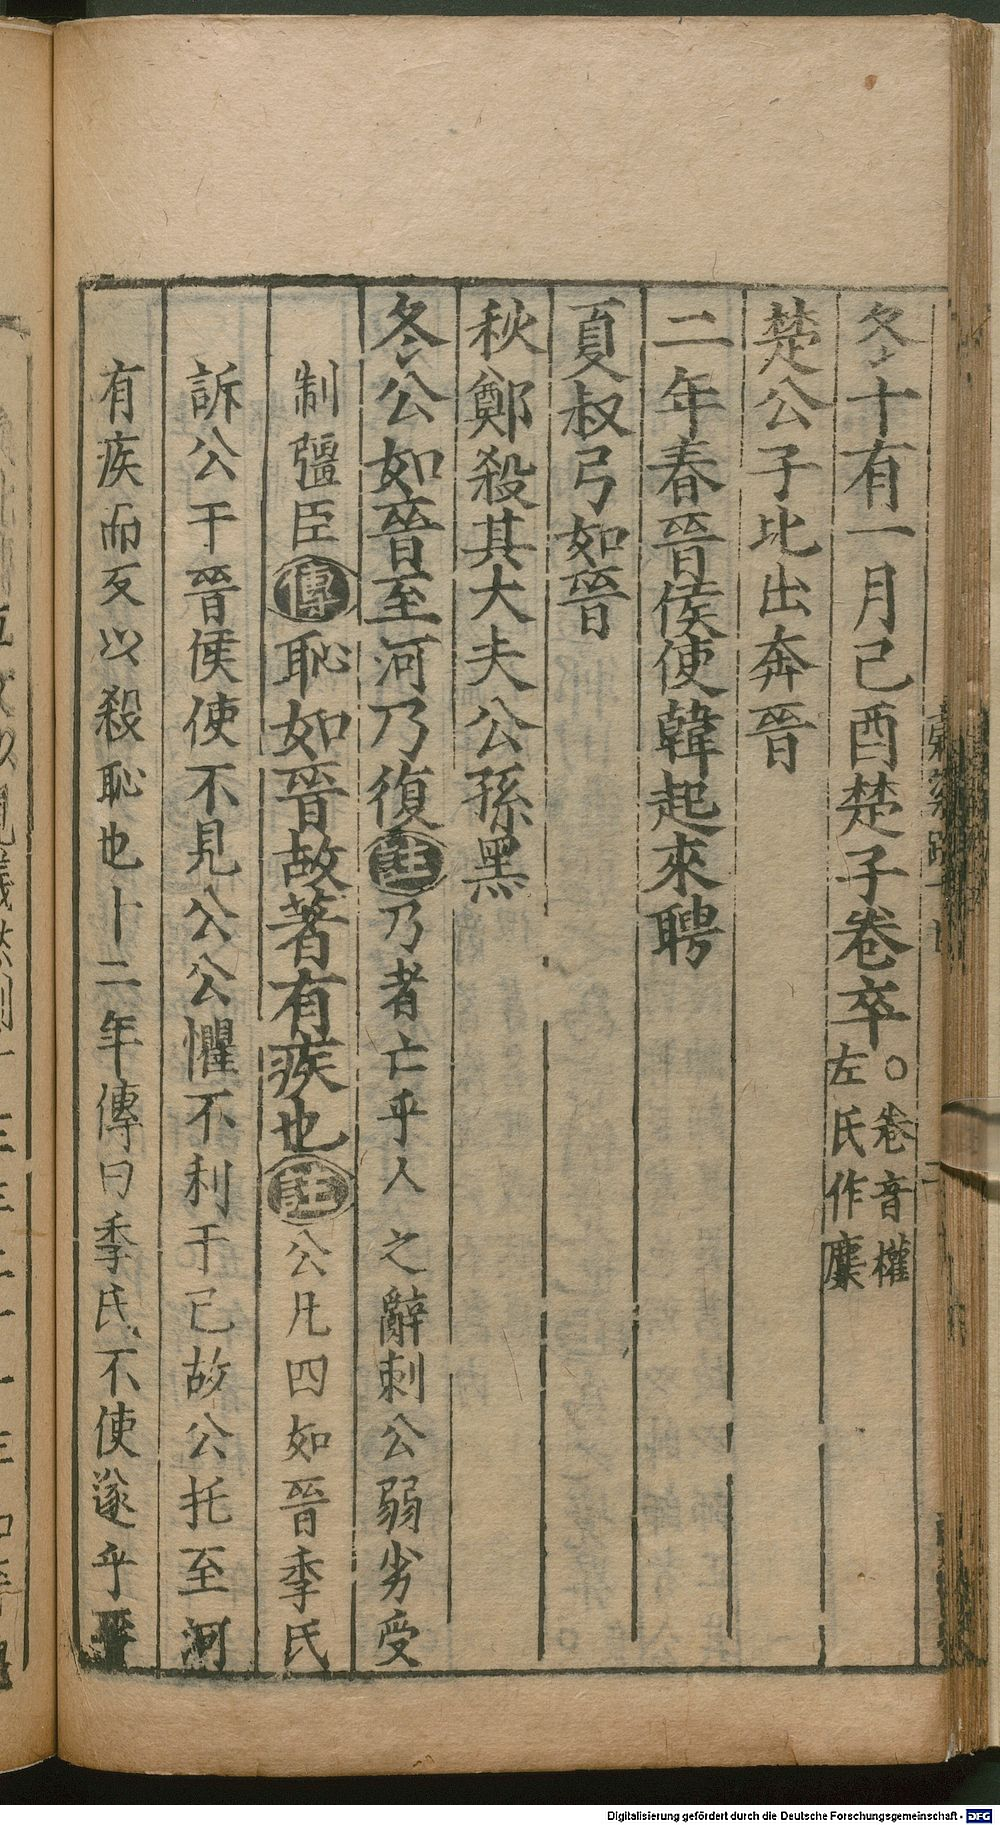 冬十有一月己酉楚子卷卒○卷音權左氏作麇
楚公子比出奔晉
二年春晉侯使韓起來聘
夏叔弓如晉
秋鄭殺其大夫公孫黑
冬公如晉至河乃復註乃者亡乎人之辭刺公弱劣受
制彊臣傳恥如晉故著有疾也註公凡四如晉季氏
訴公于晉侯使不見公公懼不利于己故公托至河
有疾而反以殺恥也十二年傳曰季氏不使遂乎晉
Digitalisierung gefördert durch die Deutsche Forschungsgemeinschaft - DFG